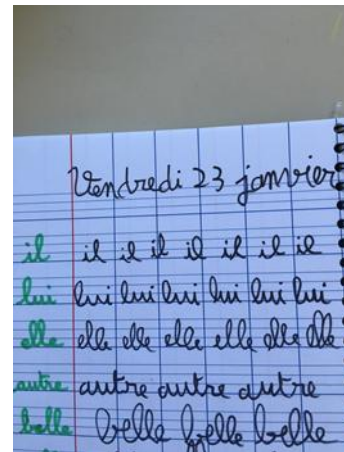 Vendredi 23 janvier
il il il il il il il il
lui lui lui lui lui lui lui
elle elle elle elle elle elle elle
autre autre autre autre
belle belle belle belle